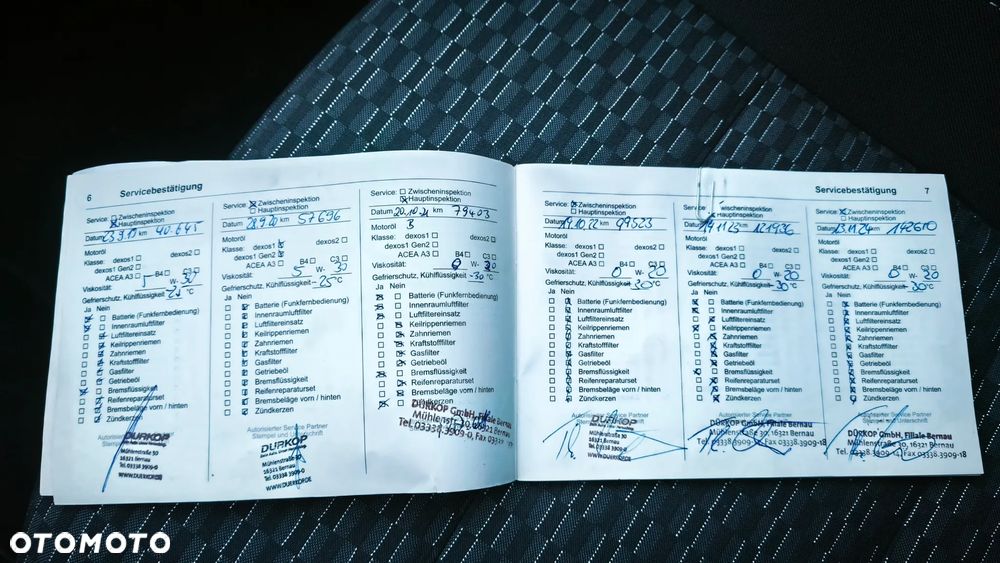 6
Servicebestätigung
Service: Zwischeninspektion
Hauptinspektion
Datum 23.9.19 km 40.645
Motoröl
Klasse: dexos1 dexos2
dexos1 Gen2
ACEA A3 B4 C3
Viskosität: 5 W- 30
Gefrierschutz, Kühlflüssigkeit
°C
Ja Nein
Batterie (Funkfernbedienung)
Innenraumluftfilter
Luftfiltereinsatz
Keilrippenriemen
Zahnriemen
Kraftstofffilter
Gasfilter
Getriebeöl
Bremsflüssigkeit
Reifenreparaturset
Bremsbeläge vorn / hinten
Zündkerzen
DÜRKOP
Mühlenstraße 30
16321 Bernau
Tel. 03338.3909-0
WWW.DUERKOP.DE
Service: Zwischeninspektion
Hauptinspektion
Datum km 57696
Motoröl
Klasse: dexos1 dexos2
dexos1 Gen2
ACEA A3 B4 C3
Viskosität: 5 W- 30
Gefrierschutz, Kühlflüssigkeit -25 °C
Ja Nein
Batterie (Funkfernbedienung)
Innenraumluftfilter
Luftfiltereinsatz
Keilrippenriemen
Zahnriemen
Kraftstofffilter
Gasfilter
Getriebeöl
Bremsflüssigkeit
Reifenreparaturset
Bremsbeläge vorn / hinten
Zündkerzen
Autorisierter Service Partner
Stempel und Unterschrift
DÜRKOP
Mühlenstraße 30
16321 Bernau
Tel. 03338.3909-0
WWW.DUERKOP.DE
Service: Zwischeninspektion
Hauptinspektion
Datum 20.10.21 km 79403
Motoröl
Klasse: dexos1 dexos2
dexos1 Gen2
ACEA A3 B4 C3
Viskosität: 0 W- 20
Gefrierschutz, Kühlflüssigkeit -30 °C
Ja Nein
Batterie (Funkfernbedienung)
Innenraumluftfilter
Luftfiltereinsatz
Keilrippenriemen
Zahnriemen
Kraftstofffilter
Gasfilter
Getriebeöl
Bremsflüssigkeit
Reifenreparaturset
Bremsbeläge vorn / hinten
Zündkerzen
DÜRKOP GmbH, Filiale Bernau
Mühlenstr. 30, 16321 Bernau
Tel. 03338.3909-0, Fax 03338.
Servicebestätigung
7
Service: Zwischeninspektion
Hauptinspektion
Datum 19.10.22 km 99523
Motoröl
Klasse: dexos1 dexos2
dexos1 Gen2
ACEA A3 B4 C3
Viskosität: 0 W- 20
Gefrierschutz, Kühlflüssigkeit -30 °C
Ja Nein
Batterie (Funkfernbedienung)
Innenraumluftfilter
Luftfiltereinsatz
Keilrippenriemen
Zahnriemen
Kraftstofffilter
Gasfilter
Getriebeöl
Bremsflüssigkeit
Reifenreparaturset
Bremsbeläge vorn / hinten
Zündkerzen
Autorisierter Service Partner
DÜRKOP
Mühlenstraße 30
16321 Bernau
Service: Zwischeninspektion
Hauptinspektion
Datum 14.11.23 km 121936
Motoröl
Klasse: dexos1 dexos2
dexos1 Gen2
ACEA A3 B4 C3
Viskosität: 0 W- 20
Gefrierschutz, Kühlflüssigkeit -30 °C
Ja Nein
Batterie (Funkfernbedienung)
Innenraumluftfilter
Luftfiltereinsatz
Keilrippenriemen
Zahnriemen
Kraftstofffilter
Gasfilter
Getriebeöl
Bremsflüssigkeit
Reifenreparaturset
Bremsbeläge vorn / hinten
Zündkerzen
Autorisierter Service Partner
DÜRKOP GmbH, Filiale Bernau
Mühlenstraße 30, 16321 Bernau
Tel. 03338.3909-, Fax 03338.3909-18
Service: Zwischeninspektion
Hauptinspektion
Datum 13.11.24 km 142610
Motoröl
Klasse: dexos1 dexos2
dexos1 Gen2
ACEA A3 B4 C3
Viskosität: 0 W- 20
Gefrierschutz, Kühlflüssigkeit -30 °C
Ja Nein
Batterie (Funkfernbedienung)
Innenraumluftfilter
Luftfiltereinsatz
Keilrippenriemen
Zahnriemen
Kraftstofffilter
Gasfilter
Getriebeöl
Bremsflüssigkeit
Reifenreparaturset
Bremsbeläge vorn / hinten
Zündkerzen
Autorisierter Service Partner
DÜRKOP GmbH, Filiale Bernau
Mühlenstraße 30, 16321 Bernau
Tel. 03338.3909-, Fax 03338.3909-18
OTOMOTO